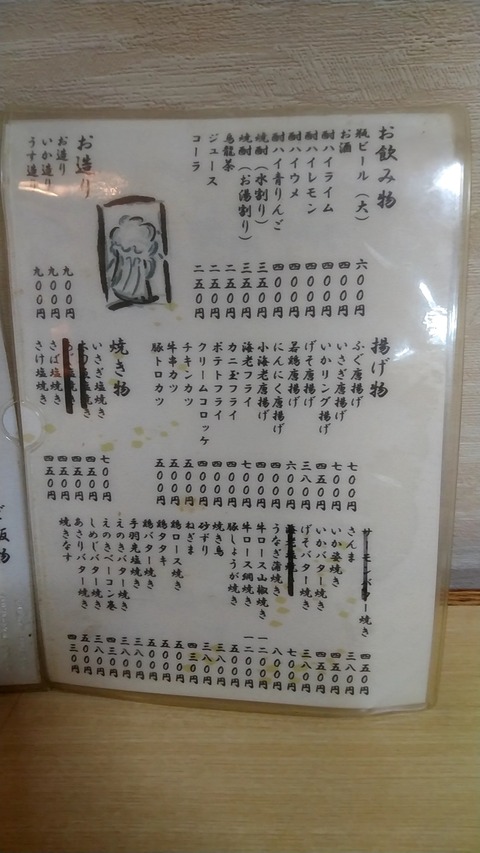 お飲み物
瓶ビール（大） 六００円
お酒 四００円
酎ハイライム 四００円
酎ハイレモン 四００円
酎ハイウメ 四００円
酎ハイ青りんご 四００円
焼酎（水割り） 三五０円
焼酎（お湯割り） 三五０円
烏龍茶 二五０円
ジュース 二五０円
コーラ 二五０円
お造り
お造り 九００円
いか造り 九００円
うす造り 九００円
揚げ物
ふぐ唐揚げ 七００円
いさぎ唐揚げ 七００円
いかリング揚げ 四五０円
げそ唐揚げ 三八０円
若鶏唐揚げ 六００円
にんにく唐揚げ 四００円
小海老唐揚げ 四００円
海老フライ 七００円
カニ玉フライ 四００円
ポテトフライ 四００円
クリームコロッケ 四００円
チキンカツ 五００円
牛串カツ 四五０円
豚トロカツ 五００円
焼き物
いさぎ塩焼き 七００円
塩焼き 四五０円
塩焼き 四五０円
さば塩焼き 四五０円
さけ塩焼き 四五０円
サーモンバター焼き 四五０円
さんま 三八０円
いか姿焼き 四五０円
いかバター焼き 四五０円
げそバター焼き 三八０円
七００円
うなぎ蒲焼き 八００円
牛ロース山椒焼き 一二００円
牛ロース網焼き 一二００円
豚しょうが焼き 五００円
焼き鳥 三八０円
砂ずり 三八０円
ねぎま 四三０円
鶏ロース焼き 五００円
鶏タタキ 五五０円
鶏バター焼き 五００円
手羽先塩焼き 三八０円
えのきバター焼き 三八０円
えのきベーコン巻 四三０円
しめじバター焼き 三八０円
あさりバター焼き 五００円
焼きなす 四三０円